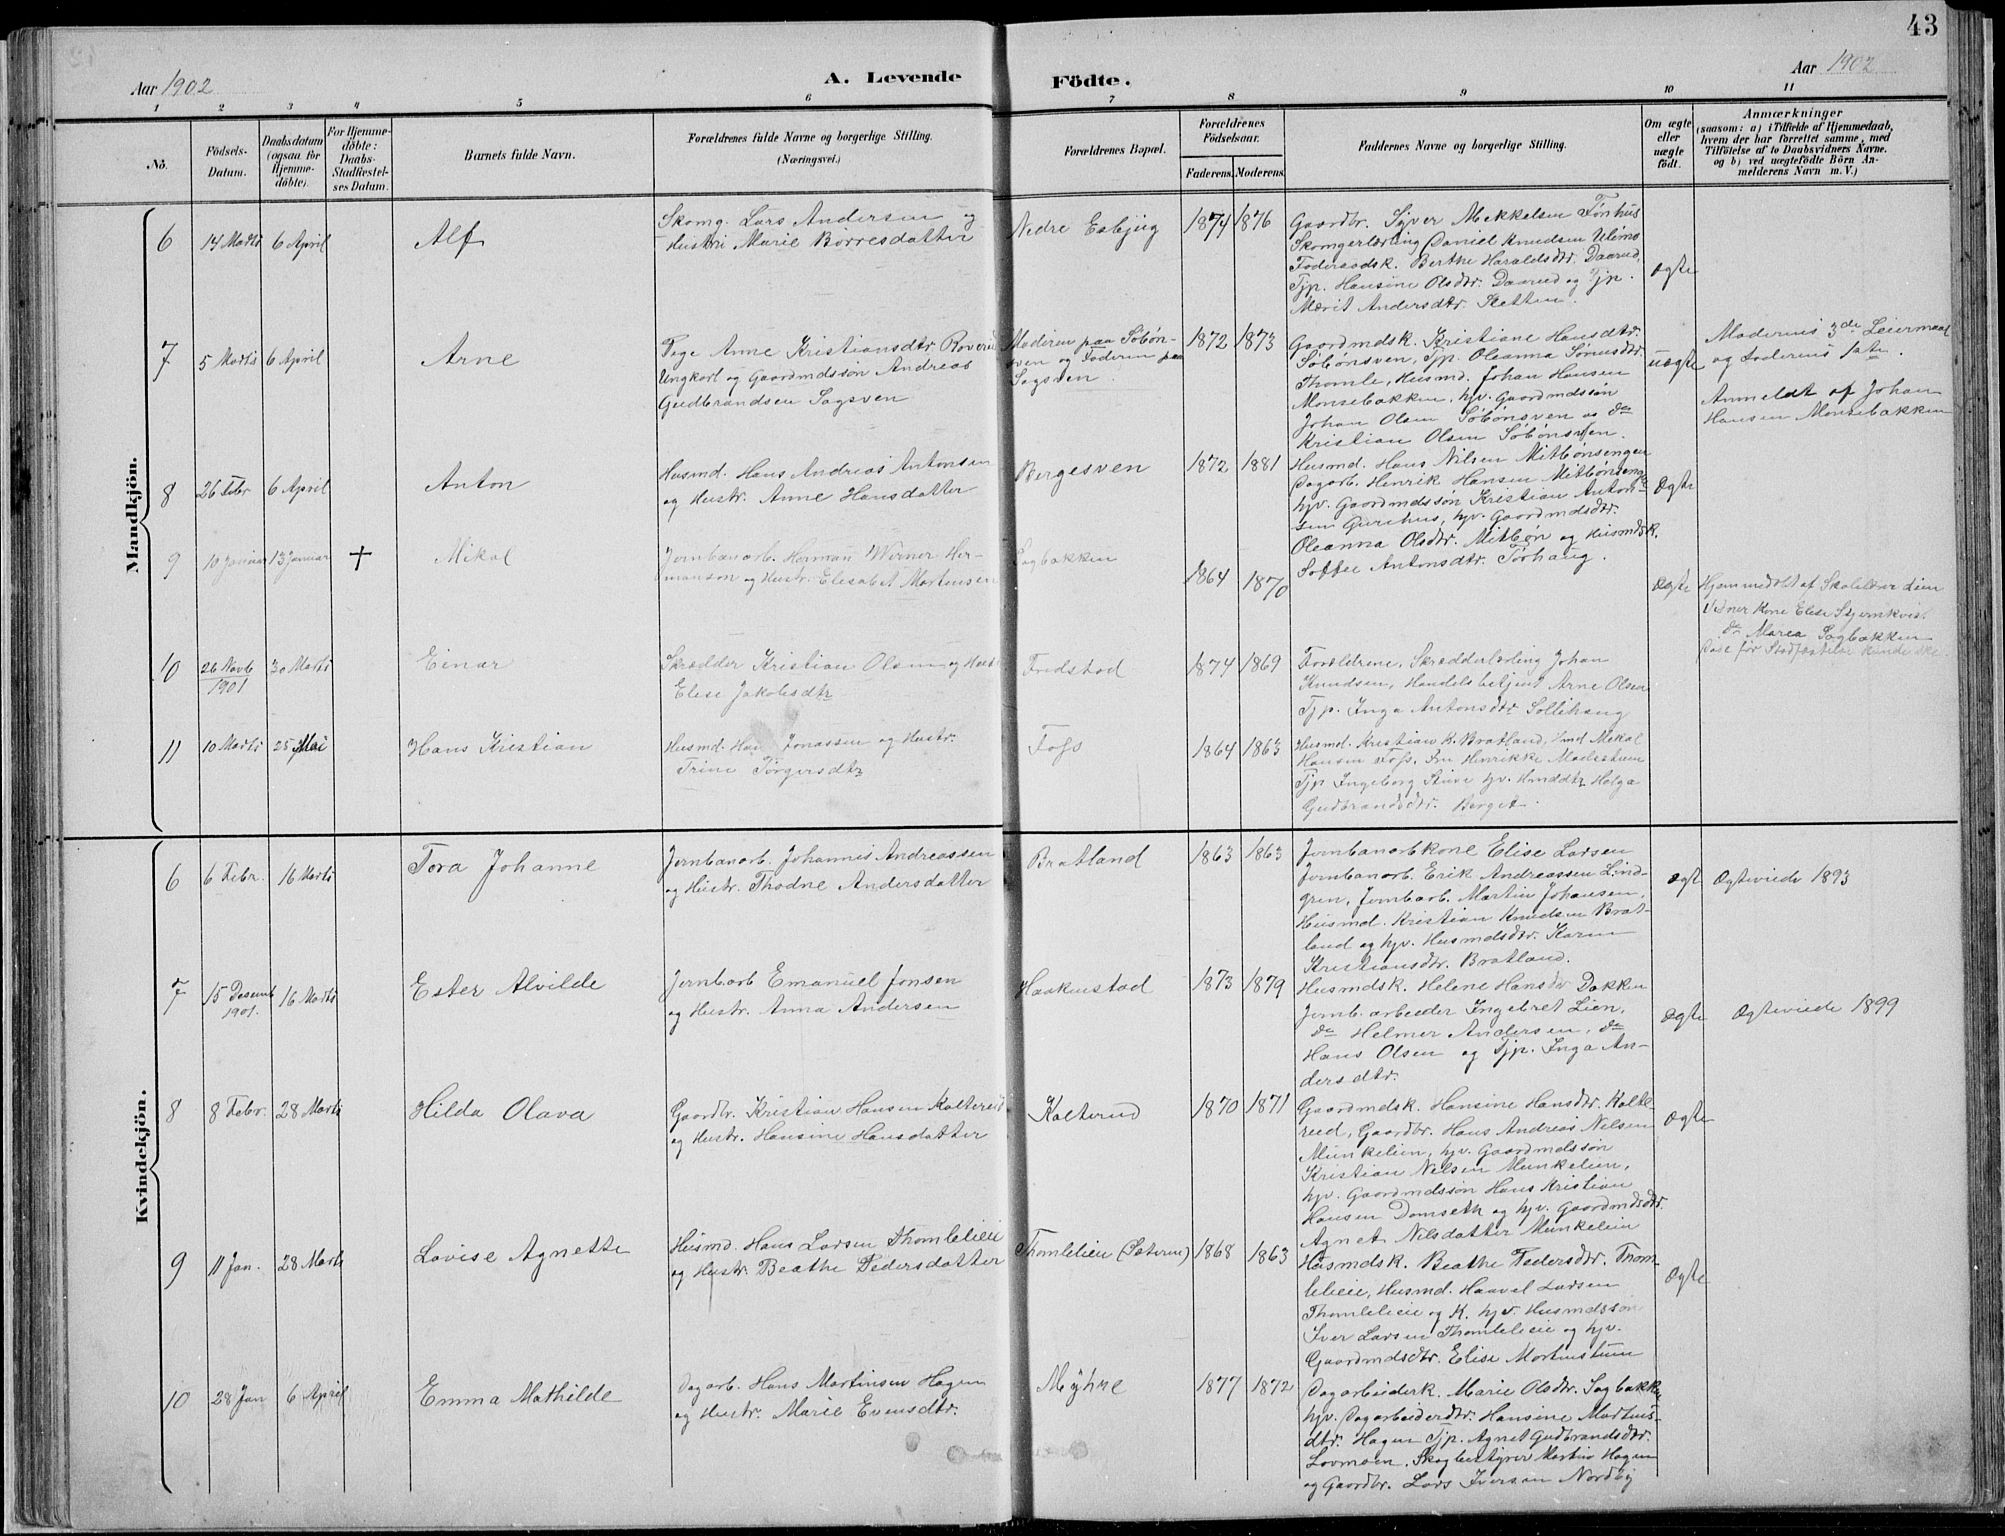 43
Aar 1902
A. Levende Födte.
Aar 1902
1 2 3 4 5 6 7 8 9 10 11
No.
Födsels-
Datum.
Daabsdatum
(ogsaa for
Hjemme-
döbte).
For Hjemme-
döbte:
Daabs-
Stadfæstel-
ses Datum.
Barnets fulde Navn.
Forældrenes fulde Navne og borgerlige Stilling.
(Næringsvei.)
Forældrenes Bopæl.
Forældrenes
Födselsaar.
Faderens. Moderens.
Faddernes Navne og borgerlige Stilling.
Om ægte
eller
uægte
født.
Anmærkninger
(saasom: a) i Tilfælde af Hjemmedaab,
hvem der har forrettet samme, med
Tilföielse af to Daabsvidners Navne.
og b) ved uægtefödte Börn An-
melderens Navn m. V.)
Mandkjön.
6
14 Marts
6 April
Alf
Skomg. Lars Andersen og
Hustri Marie Børresdatter
Nedre Esbjug
1874 1876
Gaardbr. Syver Mekkelsen Tønhus
Skomgerlærling Daniel Knudsen
Foderaadsk. Berthe Haraldsdtr. Daarud,
Tjp. Hansine Olsdtr. Daarud og Tjp.
Marit Andersdtr. Sletten.
ægte
7
5 Marts
6 April
Arne
Pige Anne Kristiansdtr. Roverud
Ungkarl og Gaardmdssøn Andreas
Gudbrandsen Sagsven
Moderen paa Søbøn-
sven og Faderen paa
Sagsven.
1872 1873
Gaardmdsk. Kristiane Hansdtr.
Søbønsven, Tjp. Oleanna
Thomle, Husmd. Johan Hansen
Monsebakken, hjv. Gaardmdssøn
Johan Olsen Søbønsven og do
Kristian Olsen Søbønsven.
uægte
Moderens 3de Leiermaal
og Faderens 1ste.
Anmeldt af Johan
Hansen Monsebakken
8
26 Febr
6 April
Anton
Husmd. Hans Andreas Antonsen
og Hustr. Anne Hansdatter
Bergesven
1872 1881
Husmd. Hans Nilsen Mitbønsengen
Dagarb. Henrik Hansen Mitbønseng
hjv. Gaardmdssøn Kristian Anton-
sen Gurihus, hjv. Gaardmdsdtr.
Oleanna Olsdtr. Mitbøn og Husmdsk.
Soffie Antonsdtr. Torhaug.
Ægte
9
10 Januar
13 Januar
+
Mikal
Jernbanarb. Herman Werner Her-
manson og Hustr. Elisabet Martinsen
Sagbakken
1864 1870
ægte
Hjemmedøbt af Skolelærer Lien
Vidner Kone Elise Stjernkvis.
do Marea Sagbakken
Døde før Stadfæstelse kunde ske.
10
26 Novb
1901
30 Marts
Einar
Skrædder Kristian Olsen og Hust.
Elise Jakobsdtr
Fredstad
1874 1869
Forældrene, Skrædderlærling Johan
Knudsen, Handelsbetjent Arne Olsen
Tjp. Inga Antonsdtr Sollihaug
11
10 Marts
25 Mai
Hans Kristian
Husmd. Han Jonassen og Hustr.
Trine Tørgersdtr
Foss
1864 1863
Husmd. Kristian K. Bratland, Hmd Mikal
Hansen Foss, Fru Henrikke Modestum
Tjp Ingeborg Rüve hjv. Hmddtr Helga
Gudbrandsdtr. Berget.
Kvindekjön.
6
6 Febr.
16 Marts
Tora Johanne
Jernbanarb. Johannis Andreassen
og Hustr. Thodne Andersdatter
Bratland
1863 1863
Jernbanarbkone Elise Larsen
Jernbanarb. Erik Andreassen Lind-
gren, Jernbarb. Martin Johansen,
Husmd. Kristian Knudsen Brat-
land og hjv. Husmdsdtr. Karen
Kristiansdtr. Bratland.
ægt
Ægteviede 1893
7
15 Desemb
1901.
16 Marts
Ester Alvilde
Jernbarb Emanuel Jonsen
og Hustr. Anna Andersen
Haakenstad
1873 1879
Husmdsk. Helene Hansdtr Dokken
Jernb. arbeider Ingebret Lien,
do Helmer Andersen, do
Hans Olsen og Tjp. Inga An-
dersdtr.
Ægte
Ægteviede 1899
8
8 Febr.
28 Marts
Hilda Olava
Gaardbr. Kristian Hansen Kalterud
og Hustr. Hansine Hansdatter
Kalterud
1870 1871
Gaardmdsk. Hansine Hansdtr. Kalte-
rud, Gaardbr. Hans Andreas Nilsen
Munkelien, hjv. Gaardmdssøn
Kristian Nilsen Munkelien,
hjv. Gaardmdssøn Hans Kristian
Hansen Domseth og hjv. Gaardmdsdtr.
Agnet Nilsdatter Munkelein
Ægte
9
11 Jan.
28 Marts
Lovise Agnette
Husmd. Hans Larsen Thomleleie
og Hustr. Beathe Pedersdatter
Thomleleien (Sæteren)
1868 1863
Husmdsk. Beathe Pedersdtr. Thom-
leleie, Husmd. Haavel Larsen
Thomleleie og K. hjv. Husmdssøn
Iver Larsen Thomleleie og hjv.
Gaardmdsdtr. Elise Mortinstuen
Ægte
10
28 Jan
6 April
Emma Mathilde
Dagarb. Hans Martinsen Hagen
og Hustr. Marie Evensdtr.
Myhre
1877 1872
Dagarbeiderk. Marie Olsdtr. Sagbakken
hjv. Dagarbeiderdtr. Hansine Martins-
dtr. Hagen Tjp. Agnet Gudbrandsdtr.
Lovmoen. Skogbestyrer Martin Hagen
og Gaardbr. Lars Iverson Nordby